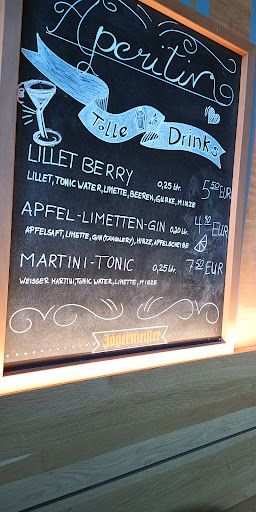 Aperitin
Tolle Drinks
LILLET BERRY 0,25 Ltr. 5 50 EUR
LILLET, TONIC WATER, LIMETTE, BEEREN, GURKE, MINZE
APFEL-LIMETTEN-GIN 0,20 Ltr. 4 90 EUR
APFELSAFT, LIMETTE, GIN (TANQUERY), MINZE, APFELSCHEIBE
MARTINI-TONIC 0,25 Ltr. 7 50 EUR
WEISSER MARTINI, TONIC WATER, LIMETTE, MINZE
Jägermeister